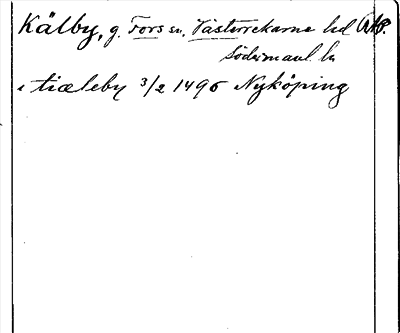 Kälby, g. Fors sn, Västerrekarne hd
Södermanl. ln
i tiæleby 3/2 1496 Nyköping